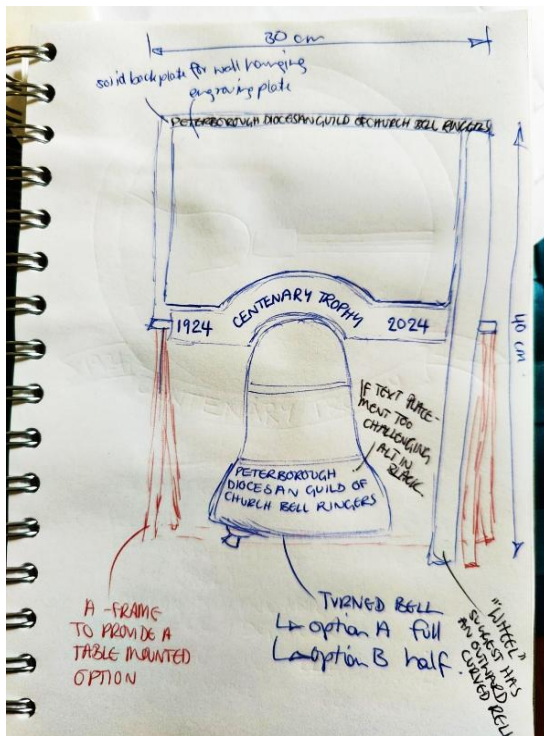 30 cm
solid back plate for wall hanging
engraving plate
PETERBOROUGH DIOCESAN GUILD OF CHURCH BELL RINGERS
CENTENARY TROPHY
1924
2024
40 cm
IF TEXT PLACE-
MENT TOO
CHALLENGING
ALT IN
BLACK
PETERBOROUGH
DIOCESAN GUILD OF
CHURCH BELL RINGERS
A-FRAME
TO PROVIDE A
TABLE MOUNTED
OPTION
TURNED BELL
↳ option A full
↳ option B half.
"WHEEL"
SUGGEST HAS
AN OUTWARD
CURVED